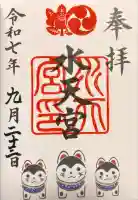 奉拝
水天宮
令和七年
九月二十二日